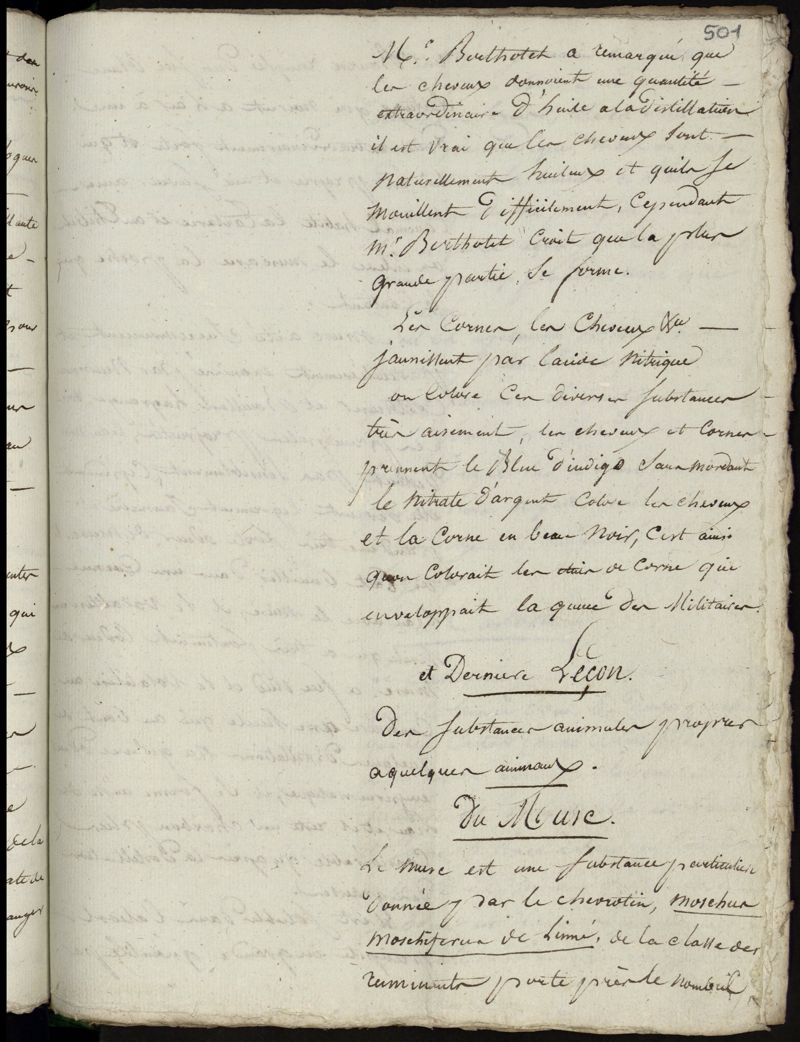 501
Mr. Berthotet a remarqué que
les cheveux donnoient une quantité
extraordinaire d'huile a la distillation
il est vrai que les cheveux sont
naturellement huileux et quils se
mouillent difficilement, Cependant
mr. Berthotet croit que la plus
grande partie se forme.
Les Cornes, les Cheveux &c.
jaunissent par lacide Nitrique
on Colore Ces diverses substances
très aisement, les cheveux et Cornes
prennent le Bleu d'indigo sans mordant
le Nitrate d'argent Colore les cheveux
et la Corne en beau Noir, C'est ainsi
quon Colorait les de Corne qui
enveloppait la queue des Militaires.
et Derniere Leçon.
Des substances animales propres
a quelques animaux.
Du Musc.
Le Musc est une substance particuliere
donnée par le chevrotin, moschus
moschiferus de Linné, de la classe des
ruminants porte près le nombril